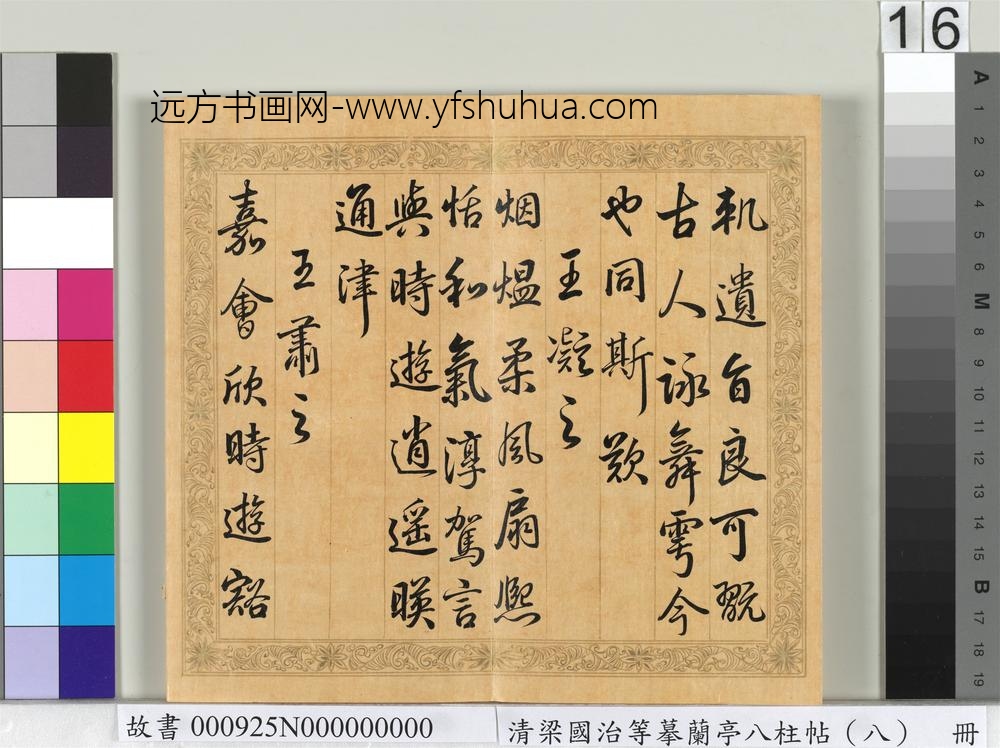 16
远方书画网-www.yfshuhua.com
軌遺旨良可翫
古人詠舞雩今
也同斯歎
王凝之
烟熅柔風扇熙
恬和氣淳駕言
與時遊逍遥暎
通津
王肅之
嘉會欣時遊豁
A
1
2
3
4
5
6
M
8
9
10
11
12
13
14
15
B
17
18
19
故書 000925N000000000
清梁國治等摹蘭亭八柱帖（八） 冊